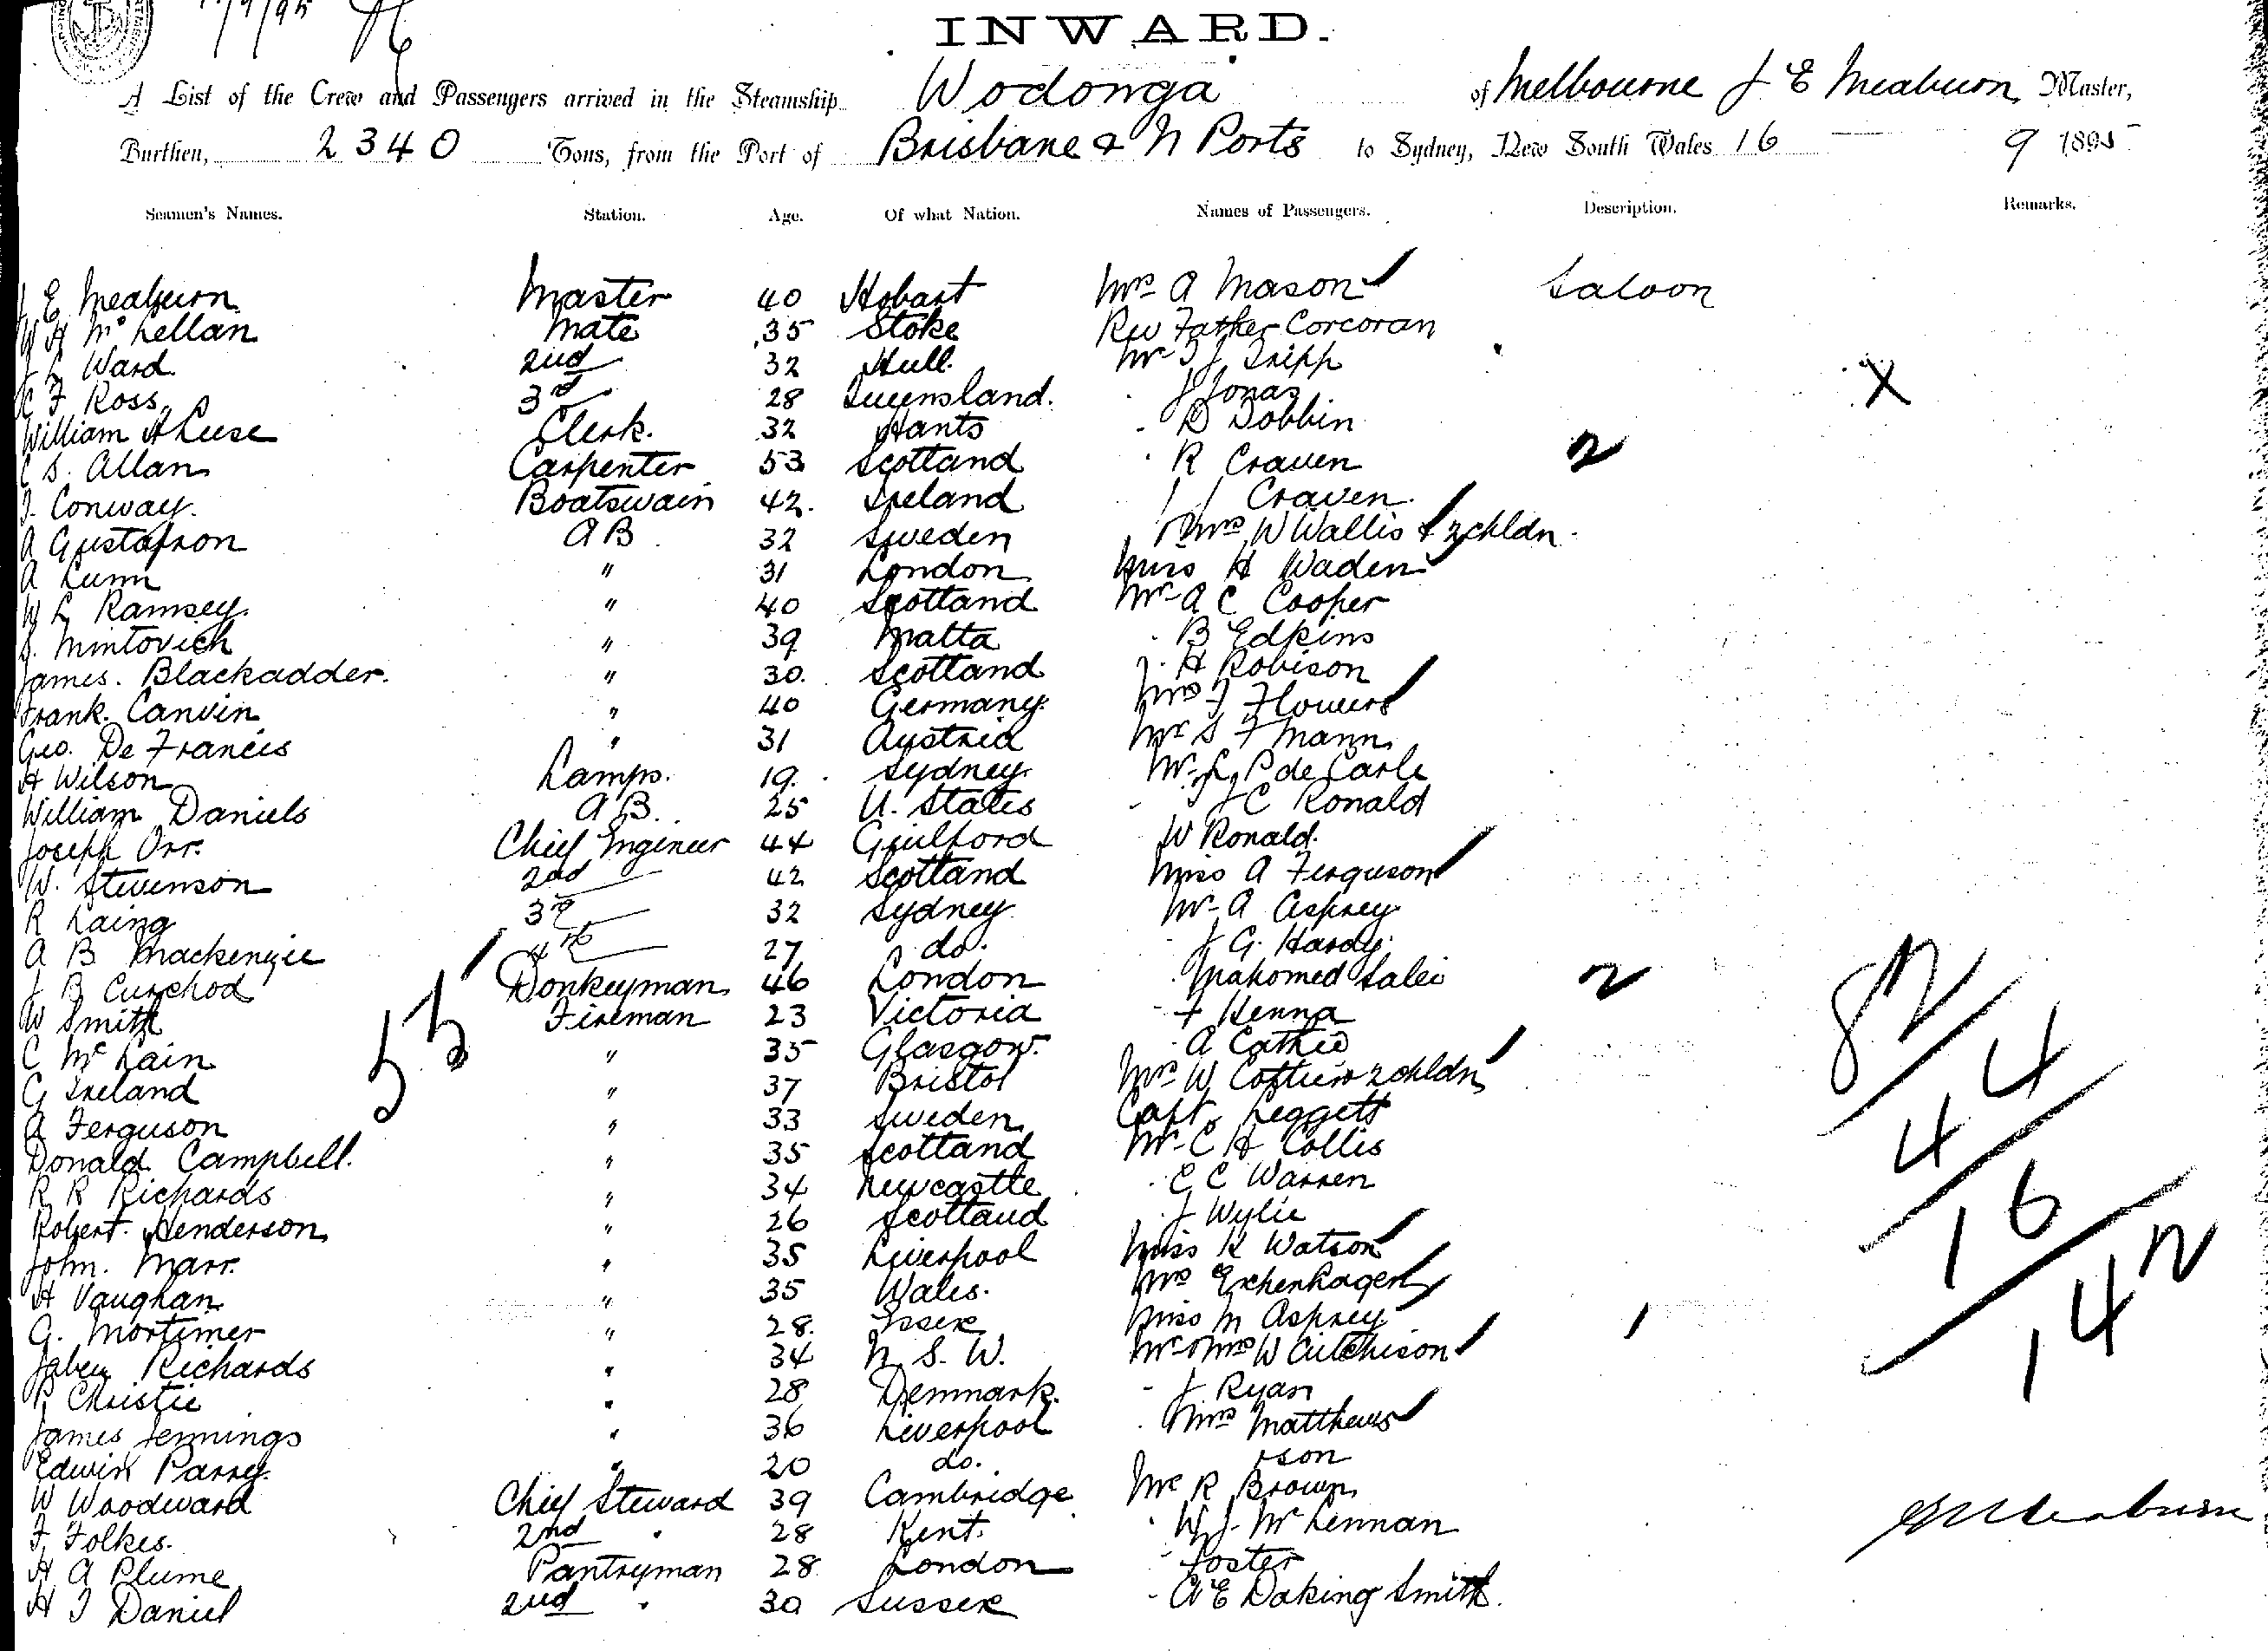 17/9/95
INWARD.
A List of the Crew and Passengers arrived in the Steamship Wodonga of Melbourne J E Meaburn Master,
Burthen, 2340 Tons, from the Port of Brisbane & N Ports to Sydney, New South Wales 16 9 1895
Seamen's Names. Station. Age. Of what Nation. Names of Passengers. Description. Remarks.
J E Meaburn Master 40 Hobart Mrs A Mason Saloon
W H Mc Lellan Mate 35 Stoke Rev Father Corcoran
J L Ward 2nd 32 Hull. Mr T J Tripp
F Ross 3rd 28 Queensland. J Jonas X
William A Luse Clerk. 32 Hants D Dobbin
C S. Allan Carpenter 53 Scotland R Craven 2
J. Conway. Boatswain 42. Ireland J Craven
A Gustafson A B 32 Sweden Mrs W Wallis & 2 chldn
A Lunn " 31 London Miss H Waden
W L Ramsey. " 40 Scotland Mr A C Cooper
S. Mintovich " 39 Malta B Edkins
James. Blackadder. " 30. Scotland H Robison
Frank. Canvin " 40 Germany. Mrs J Flowers
Geo. De Francis " 31 Austria Mr S F Mann
H Wilson Lamps. 19. Sydney. Mr L P de Carle
William Daniels A B. 25 U. States J C Ronald
Joseph Orr. Chief Ingineer 44 Guilford W Ronald.
W. Stevenson 2nd 42 Scotland Miss A Ferguson
R Laing 3rd 32 Sydney Mr A Asprey
A B Mackenzie 4th 27 do. J G. Hardy.
J B Curchod Donkeyman 46 London Mahomed Salei 2
W Smith Fireman 23 Victoria F Henna
C Mc Lain " 35 Glasgow. A Cathie
G Ireland " 37 Bristol Mrs W Cottier 2 chldn
A Ferguson " 33 Sweden Capt. Leggett
Donald Campbell. " 35 Scotland Mr C H Collis
R R Richards " 34 Newcastle E C Warren
Robert. Henderson " 26 Scotland J Wylie
John. Marr. " 35 Liverpool Miss K Watson
H Vaughan " 35 Wales. Mrs Eschenhagen
G. Mortimer " 28. Essex Miss M Asprey
Jabez Richards " 34 N. S. W. Mr & Mrs W Cutchison
P Christie " 28 Denmark. J Ryan
James Jennings " 36 Liverpool Mrs Matthews
Edwin Parry. " 20 do. & son
W Woodward Chief Steward 39 Cambridge Mr R Brown
F. Folkes. 2nd " 28 Kent. W J. McLennan
H A Plume Pantryman 28 London Foster
H J Daniel 2nd " 30 Sussex A E Daking Smith.
55
82
4
4
16
142
J E Meaburn